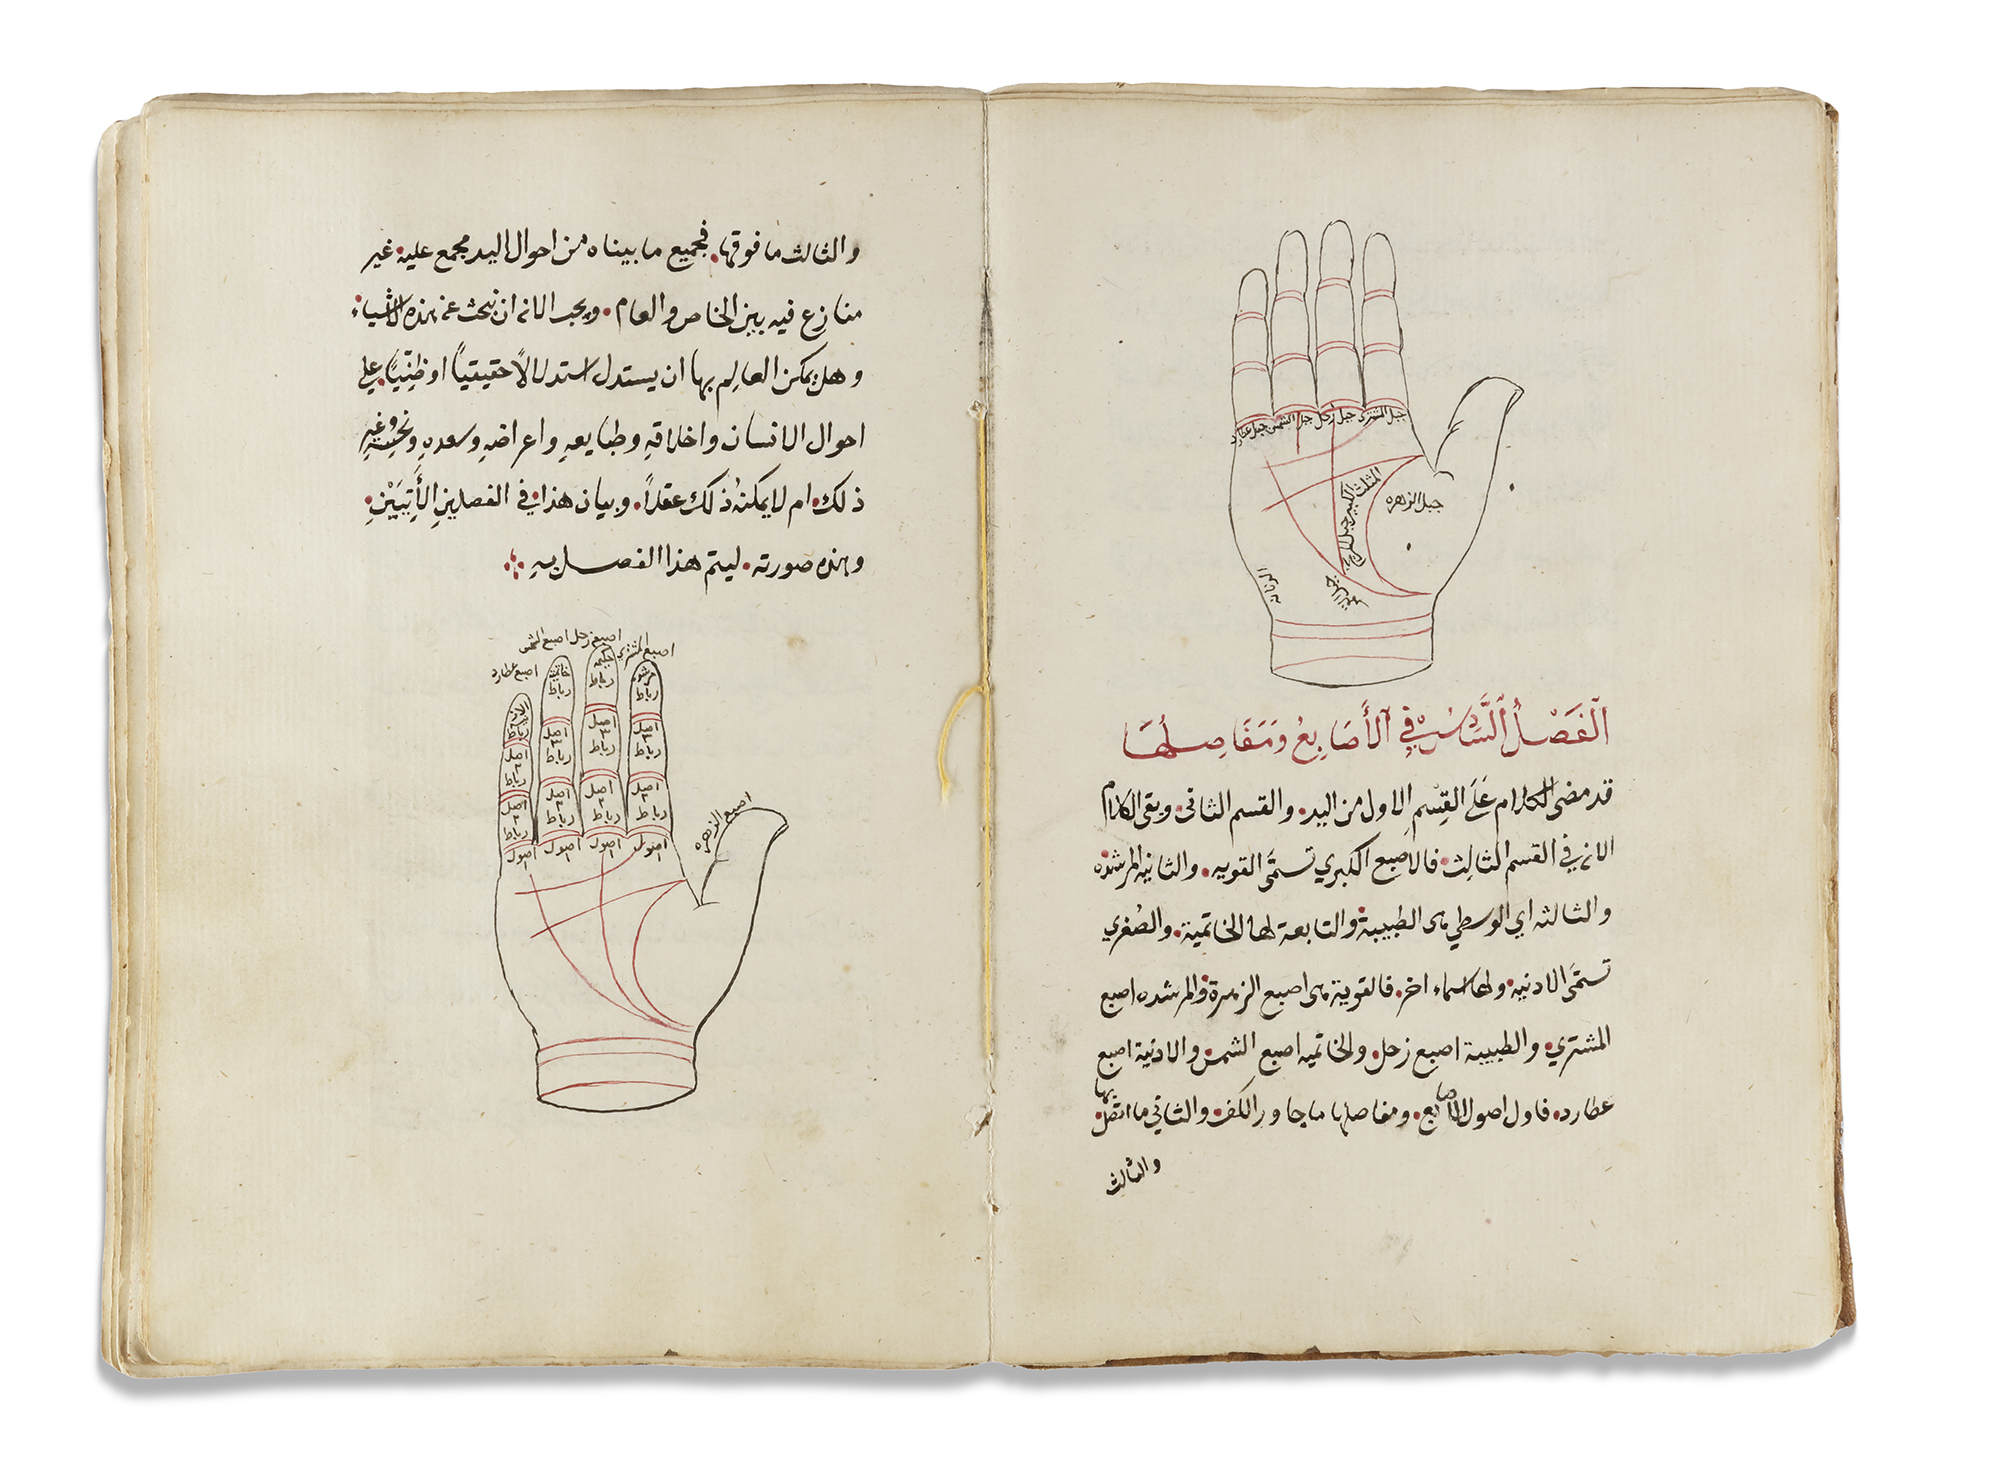 جبل المشتري
جبل زحل
جبل الشمس
جبل عطارد
المثلث الكبير
جبل المريخ
جبل الزهره
جبل القمر
الفَصْلُ السَّادِسُ في الأَصَابِعُ وَمَفَاصِلُهَا
قد مضى الكلام عَلَى القِسْمِ الاول من اليد. والقسم الثاني. وبقى الكلام
الان في القسم الثالث. فالاصبع الكبري تسمَّى القويه. والثانيه المرشده
والثالثه اي الوسطي هى الطبيبة والتابعة لها الخاتمية. والصُغري
تسمَّى الادنيه. ولها اسماء اخر. فالقوية هى اصبع الزهرة. والمرشده اصبع
المشتري. والطبيبة اصبع زحل. والخاتميه اصبع الشمس. والادنية اصبع
عطارد. فاول اصول الاصابع. ومفاصلها ما جاور الكف. والثاني ما اتصل بها.
والثالث
والثالث ما فوقها. فجميع ما بيناه من احوال اليد مجمع عليه. غير
منازع فيه بين الخاص والعام. ويجب الان ان نبحث عن هذه الاشياء.
وهل يمكن العالِم بها ان يستدل استدلالاً حقيقياً او ظنِّيّاً. على
احوال الانسان واخلاقهِ وطبايعهِ واعراضهِ وسعدهِ ونحسهِ وغير
ذلك. ام لا يمكنهُ ذلك عقلاً. وبيان هذا. في الفصلينِ الأَتِيَيْنِ.
وهذه صورته. ليتم هذا الفصل بهِ
اصبع المشتري
اصبع زحل
اصبع الشمس
اصبع عطارد
مرشده رباط
حكيمه رباط
خاتميه رباط
رباط
اصل ٣ رباط
اصل ٣ رباط
اصل ٣ رباط
اصل ٣ رباط
اصل ٢ رباط
اصل ٢ رباط
اصل ٢ رباط
اصل ٢ رباط
اصول
اصول
اصول
اصول
اصبع الزهره